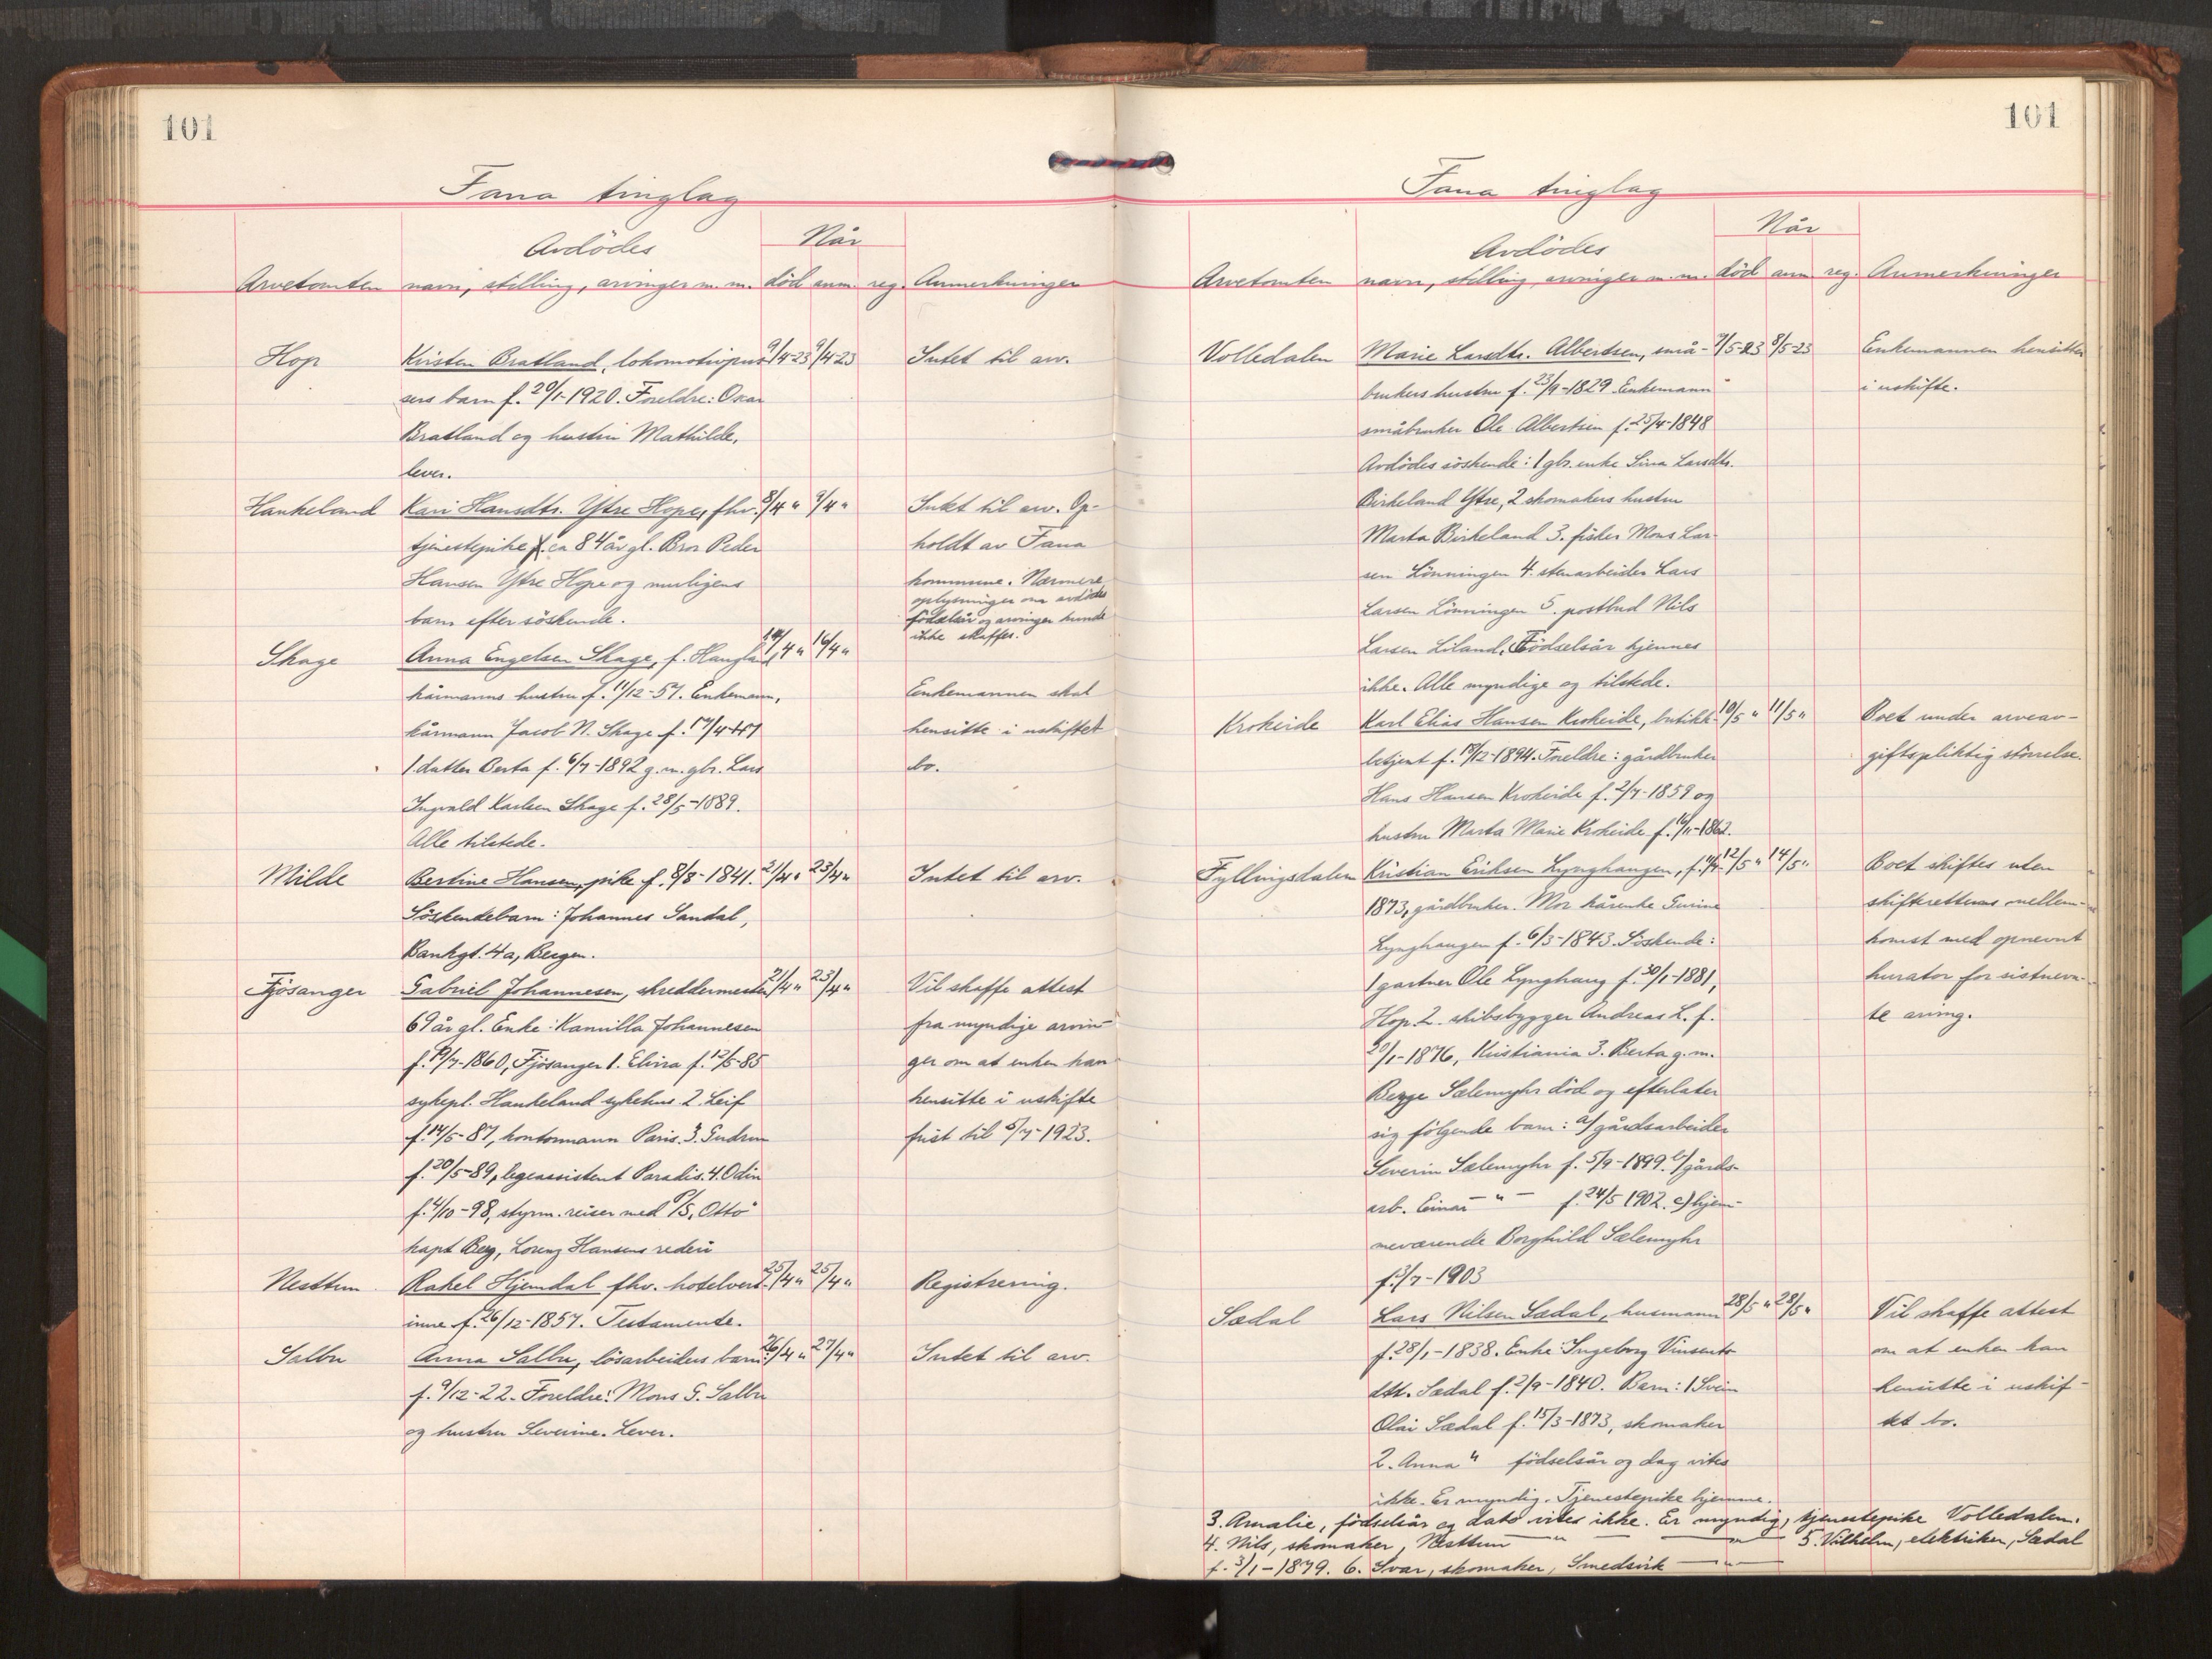 101
Fana tinglag
Avdödes
Når
Arvetomten navn, stilling, arvinger m. m. död anm. reg. Anmerkninger
Hop Kirsten Bratland, lokomotivpus- 9/4-23 9/4-23 Intet til arv.
sers barn f. 20/1-1920. Foreldre: Oskar
Bratland og hustru Mathilde,
lever.
Haukeland Kari Hansdtr. Ytre Hope, fhv. 8/4 " 9/4 " Intet til arv. Op-
tjenestepike f. ca 84 år gl. Bror Peder holdt av Fana
Hansen Ytre Hope og muligens kommune. Nærmere
oplysninger om avdödes
barn efter söskende. födselsår og arvinger kunde
ikke skaffes.
Skage Anna Engelsen Skage, f. Haugland, 14/4 " 16/4 "
kårmanns hustru f. 11/12-57. Enkemann, Enkemannen skal
kårmann Jacob N. Skage f. 17/4-47 hensitte i uskiftet
1. datter Berta f. 6/7-1892 g. m. gbr. Lars bo.
Ingvald Karlsen Skage f. 28/5-1889.
Alle tilstede.
Milde Bertine Hansen, pike f. 8/8-1841. 21/4 " 23/4 " Intet til arv.
Söskendebarn: Johannes Sandal,
Bankgt. 4a, Bergen.
Fjösanger Gabriel Johannesen, skreddermester 21/4 " 23/4 " Vil skaffe attest
69 år gl. Enke: Kamilla Johannesen fra myndige arvin-
f. 19/7-1860, Fjösanger 1. Elvira f. 12/5-85 ger om at enken kan
sykepl. Haukeland sykehus. 2. Leif hensitte i uskifte
f. 14/5-87, kontormann Paris. 3. Gudrun frist til 5/7-1923.
f. 20/5-89, legeassistent Paradis. 4. Odin
f. 4/10-98, styrm. reiser med D/S "Otto"
kapt Berg, Lorenz Hansens rederi
Nesttun Rakel Hjemdal fhv. hotelvert- 25/4 " 25/4 " Registrering.
inne f. 26/12-1857. Testamente.
Salbu Anna Salbu, lösarbeiders barn 26/4 " 27/4 " Intet til arv.
f. 9/12-22. Foreldre: Mons G. Salbu
og hustru Severine. Lever.
101
Fana tinglag
Avdödes
Når
Arvetomten navn, stilling, arvinger m. m. död anm. reg. Anmerkninger
Volledalen Marie Larsdtr. Albertsen, små- 7/5-23 8/5-23 Enkemannen hensitter
brukers hustru f. 23/9-1829. Enkemann i uskifte.
småbruker Ole Albertsen f. 25/4-1848
Avdödes söskende: 1 gbr. enke Sina Larsdtr.
Birkeland Ytre, 2 skomakers hustru
Marta Birkeland 3. fisker Mons Lar-
sen Lönningen 4. stenarbeider Lars
Larsen Lönningen 5. postbud Nils
Larsen Liland. Födselsår kjennes
ikke. Alle myndige og tilstede.
Krokeide Karl Elias Hansen Krokeide, butikk- 10/5 " 11/5 " Boet under arveav-
betjent f. 18/12-1894. Foreldre: gårdbruker giftspliktig störrelse.
Hans Hansen Krokeide f. 2/7-1859 og
hustru Marta Marie Krokeide f. 16/11-1862.
Fyllingsdalen Kristian Eriksen Lynghaugen, f. 11/4 12/5 " 14/5 " Boet skiftes uten
1873, gårdbruker. Mor kårenke Gurine skifterettens mellem-
Lynghaugen f. 6/3-1843. Söskende: komst med opnevnt
1 gartner Ole Lynghaug f. 30/1-1881, kurator for sistnevn-
Hop. 2. skibsbygger Andreas L. f. te arving.
29/1-1876, Kristiania 3. Berta g. m.
Berge Sælemyhr död og efterlater
sig fölgende barn: a/ gårdsarbeider
Severin Sælemyhr f. 5/9-1899. b/ gårds-
arb. Einar — " — f. 24/5 1902. c) hjem-
meværende Borghild Sælemyhr
f. 3/7-1903
Sædal Lars Nilsen Sædal, husmann 28/5 " 28/5 " Vil skaffe attest
f. 28/1-1838. Enke: Ingeborg Vinsents- om at enken kan
dtt. Sædal f. 2/9-1840. Barn: 1 Svein hensitte i uskif-
Olai Sædal f. 15/3-1873, skomaker tet bo.
2. Anna " födselsår og dag vites
ikke. Er myndig. Tjenestepike hjemme.
3. Amalie, födselsår og dato vites ikke. Er myndig, tjenestepike Volledalen.
4. Nils, skomaker, Nesttun — " — — " — 5. Vilhelm, elektriker, Sædal
f. 3/1-1879. 6. Ivar, skomaker, Smedsvik — " —